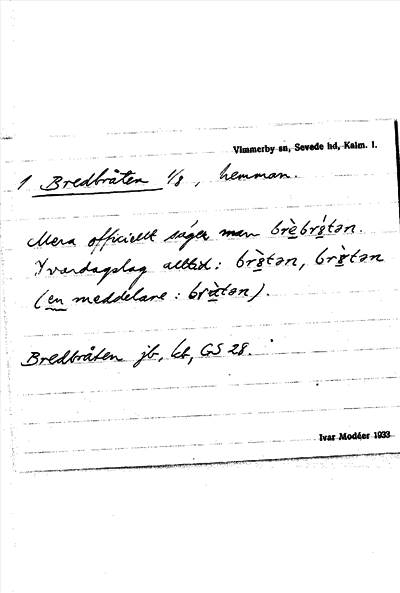 Vimmerby sn, Sevede hd, Kalm. l.
1 Bredbråten 1/8, hemman.
Mera officiellt säger man
I vardagslag alltid:
(en meddelare:
Bredbråten jb, kb, GS 28.
Ivar Modéer 1933